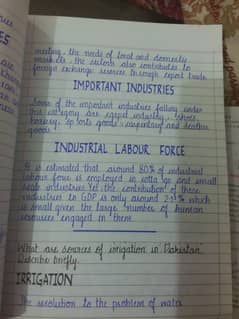 meeting the needs of local and domestic
markets, the sectors also contributes to
foreign exchange sources through export trade.
IMPORTANT INDUSTRIES
Some of the important industries falling under
this category are carpet industry, shoes,
hosiery, Sports goods, carpentry and leather
goods.
INDUSTRIAL LABOUR FORCE
It is estimated that around 80% of industrial
labour force is employed in cottage and small
scale industries. Yet the contribution of these
industries to GDP is only around 25% which
is small given the large number of human
resources engaged in them.
What are sources of irrigation in Pakistan.
Describe briefly.
IRRIGATION
The resolution to the problem of water